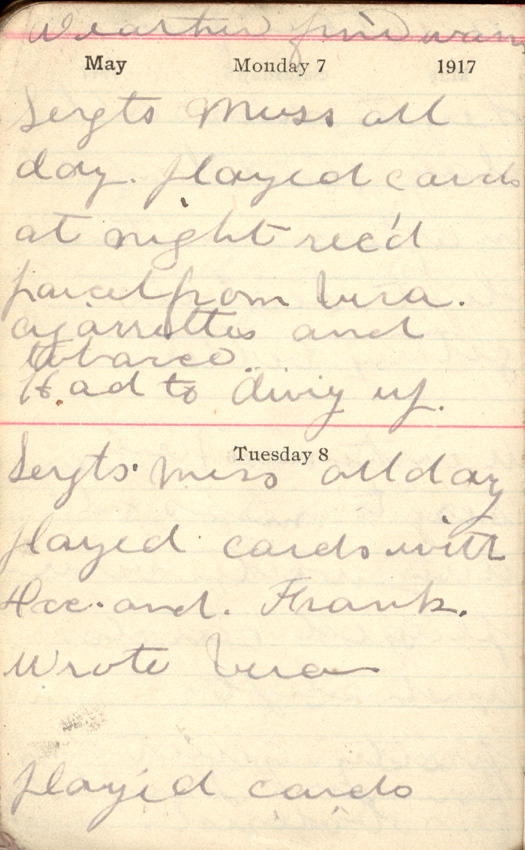 Weather fine warm
May Monday 7 1917
Sergts Muss all
day. played cards
at night rec'd
parcel from Vera.
cigarrettes and
tobacco.
Had to divy up.
Tuesday 8
Sergts. Mess all day
played cards with
and. Frank.
Wrote Vera
played cards